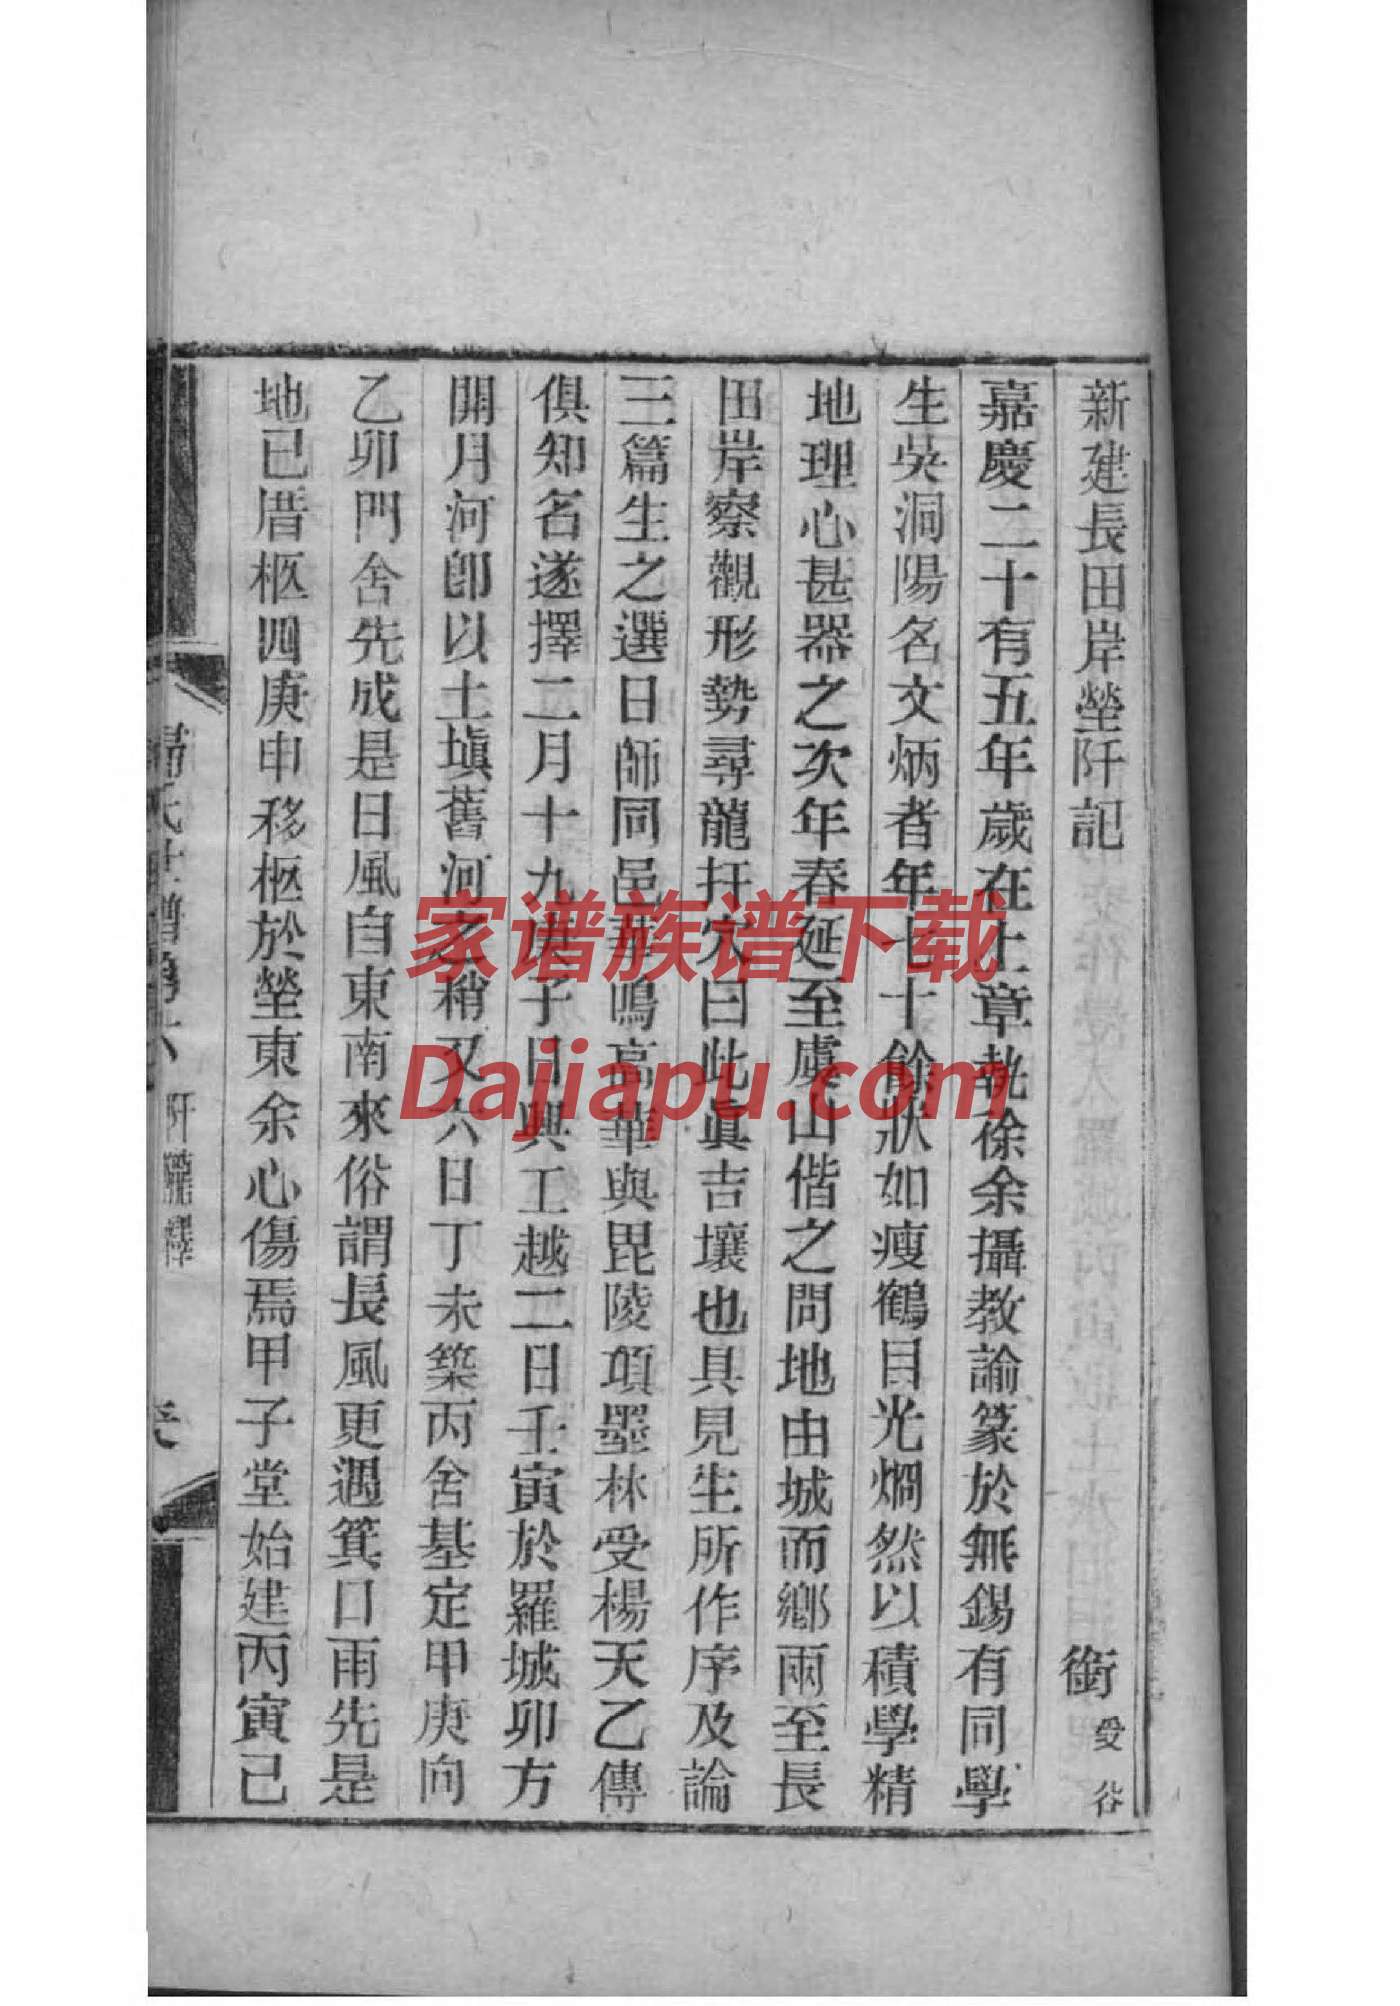 新建長田岸塋阡記
銜 受谷
嘉慶二十有五年歲在上章執徐余攝教諭篆於無錫有同學
生吳洞陽名文炳者年七十餘狀如瘦鶴目光烱然以積學精
地理心甚器之次年春延至虞山偕之問地由城而鄉雨至長
田岸察觀形勢尋龍扦穴曰此眞吉壤也具見生所作序及論
三篇生之選日師同邑華鳴高華與毘陵項墨林受楊天乙傳
俱知名遂擇二月十九庚子日興工越二日壬寅於羅城卯方
開月河卽以土塡舊河之稍又六日丁未築丙舍基定甲庚向
乙卯門舍先成是日風自東南來俗謂長風更遇箕口雨先是
地已厝柩四庚申移柩於塋東余心傷焉甲子堂始建丙寅己
氏世譜
阡隴譯
家谱族谱下载
Dajiapu.com